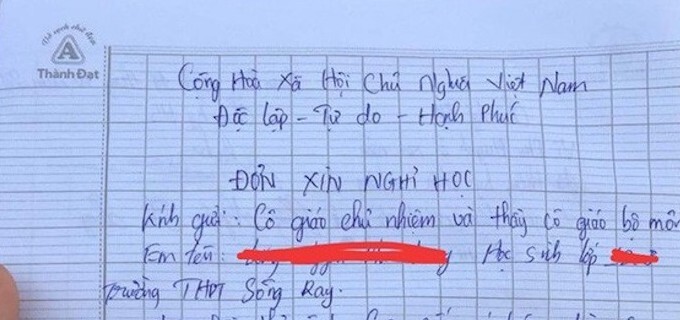 Vở sạch chữ đẹp
A
Thành Đạt
Cộng Hoà Xã Hội Chủ Nghĩa Việt Nam
Độc lập - Tự do - Hạnh Phúc
ĐƠN XIN NGHỈ HỌC
Kính gửi: Cô giáo chủ nhiệm và thầy cô giáo bộ môn
Em tên: Học sinh lớp
trường THPT Sông Ray.